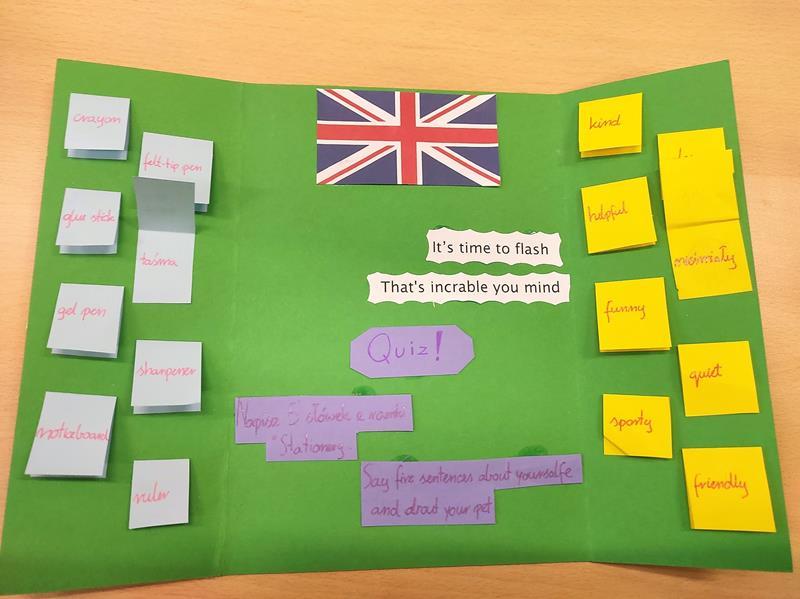 crayon
felt-tip pen
glue stick
taśma
gel pen
sharpener
noticeboard
ruler
It's time to flash
That's incrable you mind
Quiz!
Napisz 5 słówek z ramki
"Stationery.
Say five sentences about yourselfe
and drout your pet
kind
helpful
nieśmiały
funny
quiet
sporty
friendly